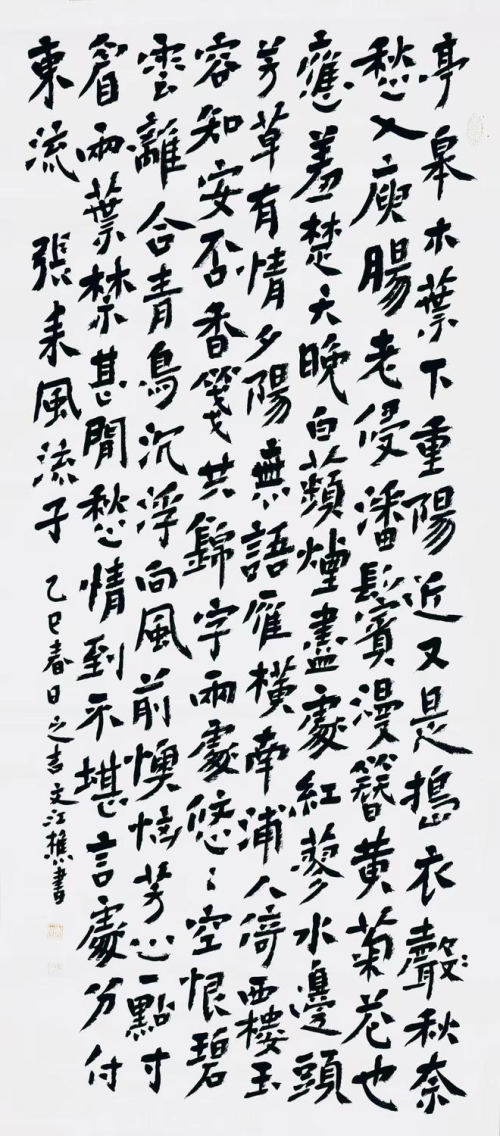 亭皋木葉下重陽近又是搗衣聲秋奈
愁入庾腸老侵潘鬢漫簪黄菊花也
應羞楚天晚白蘋煙盡處紅蓼水邊頭
芳草有情夕陽無語雁橫南浦人倚西樓玉
容知安否香箋共錦字兩處悠〻空恨碧
雲離合青鳥沉浮向風前懊惱芳心一點寸
眉兩葉禁甚閒愁情到不堪言處分付
東流 張耒風流子 乙巳春日之吉文江樵書